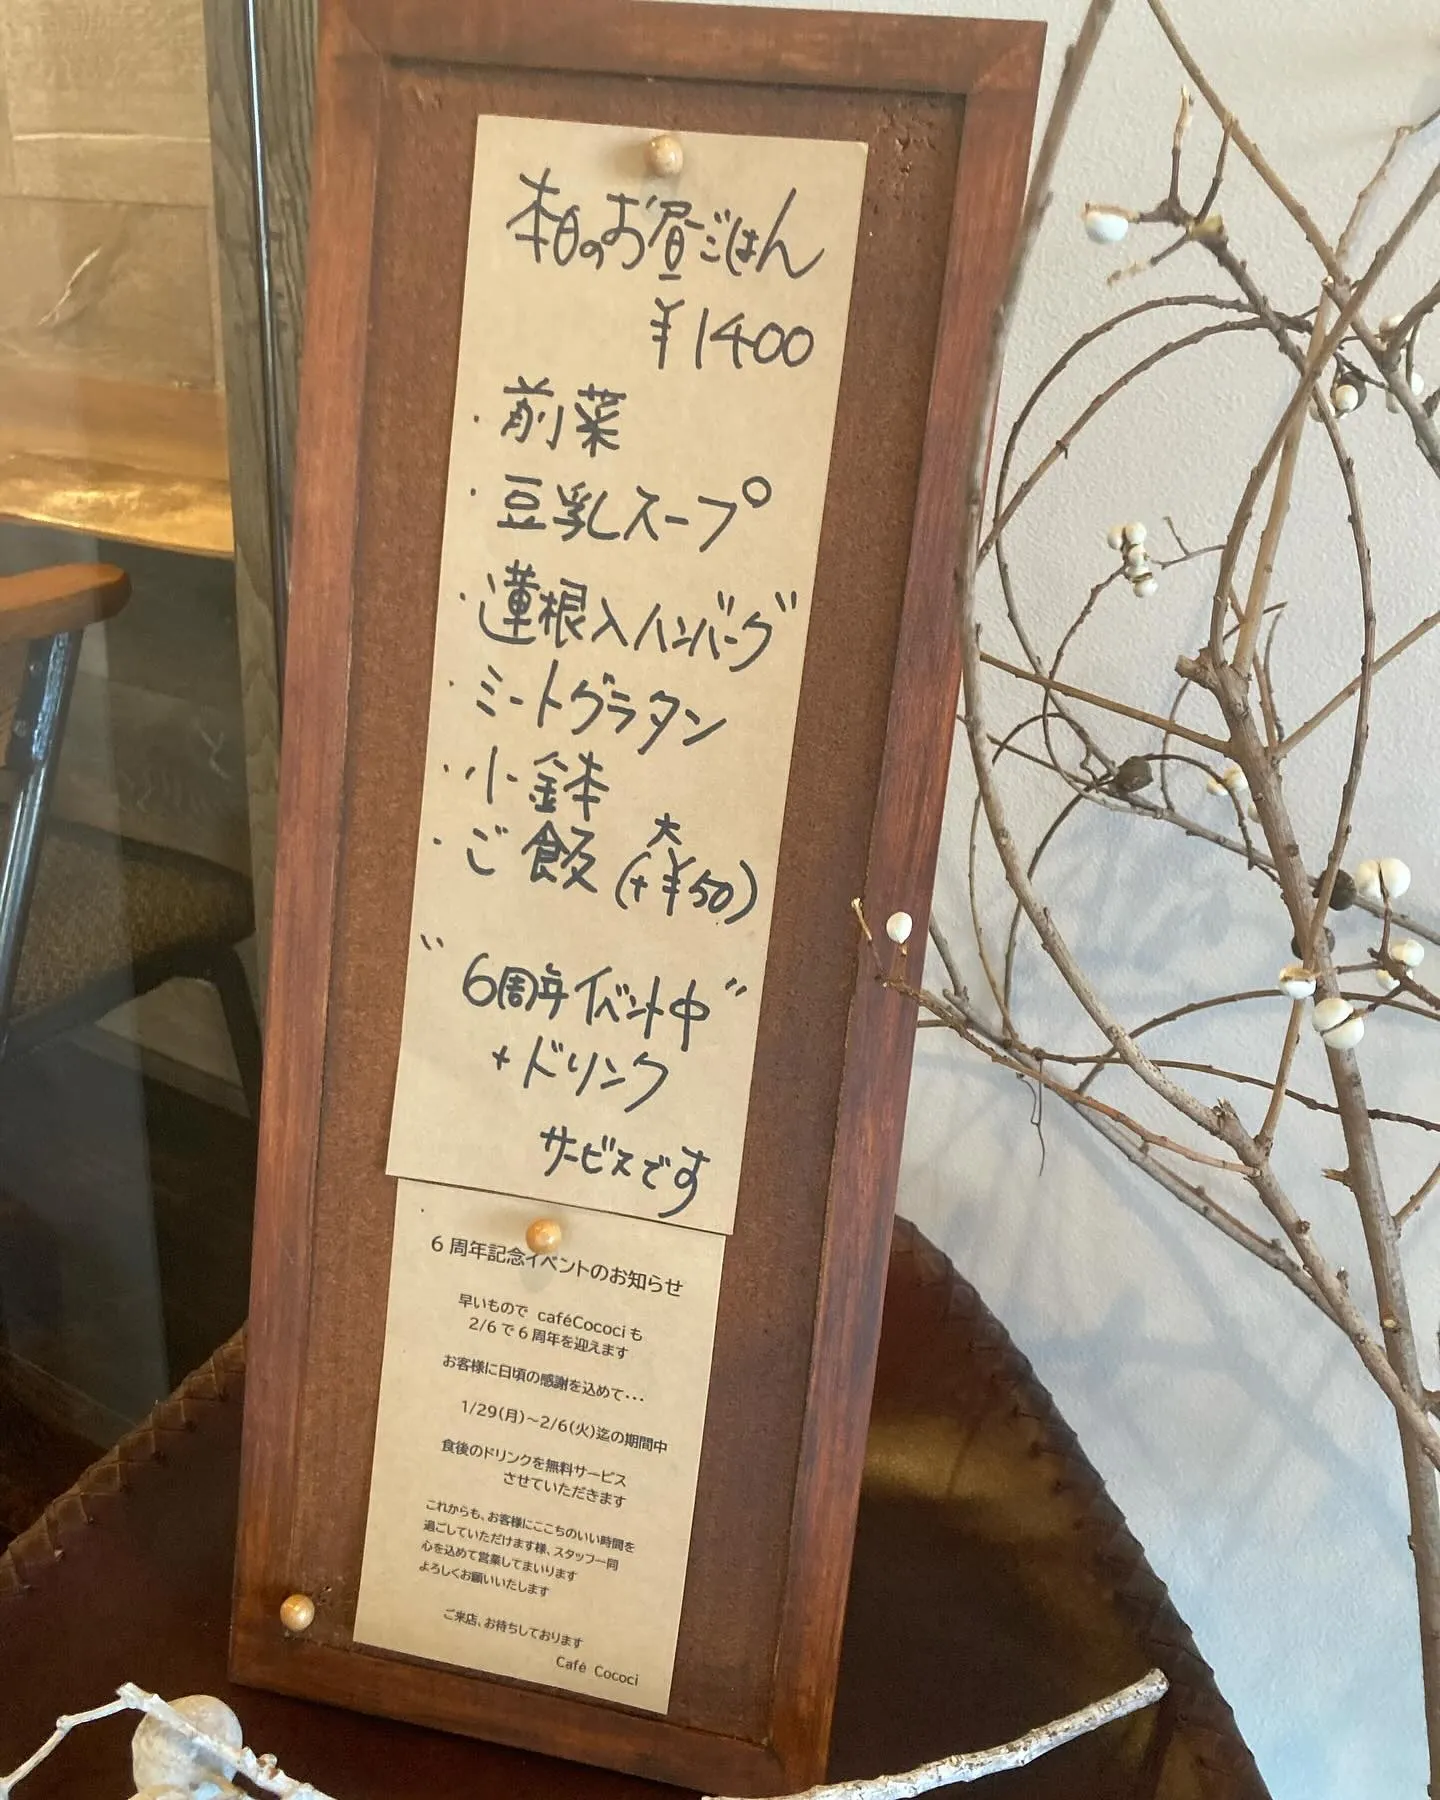 本日のお昼ごはん
¥1400
・前菜
・豆乳スープ
・蓮根入ハンバーグ
・ミートグラタン
・小鉢
・ご飯 大(+¥50)
"6周年イベント中"
+ドリンク
サービスです
6周年記念イベントのお知らせ
早いもので caféCocociも
2/6で6周年を迎えます
お客様に日頃の感謝を込めて・・・
1/29(月)～2/6(火)迄の期間中
食後のドリンクを無料サービス
させていただきます
これからも、お客様にここちのいい時間を
過ごしていただけます様、スタッフ一同
心を込めて営業してまいります
よろしくお願いいたします
ご来店、お待ちしております
Café Cococi